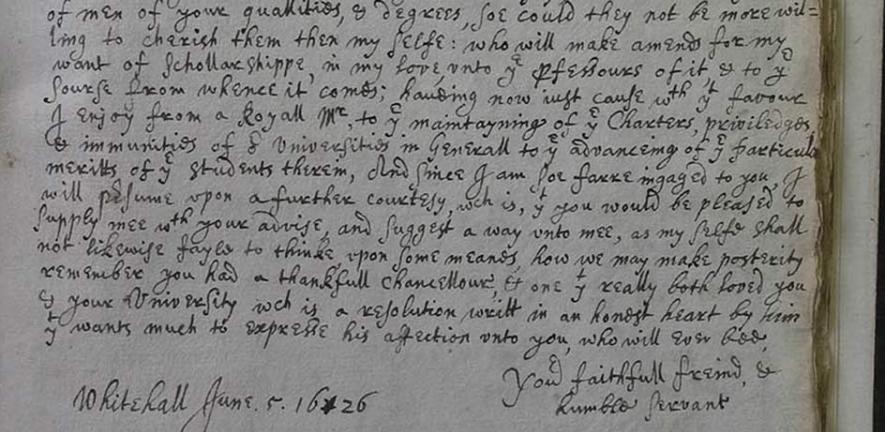 of men of your quallities, & degrees, soe could they not be more wil=
ling to cherish them then my selfe: who will make amends for my
want of Schollarshippe, in my love vnto yͤ pfessours of it, & to yͤ
sourse from whence it comes; haveing now iust cause wth yͭ favour
I enjoy from a Royall Mr, to yͤ maintayning of yͤ Charters, priviledges,
& immunities of yͤ Vniversities in Generall to yͤ advanceing of yͤ particular
meritts of yͤ students therein, And since I am soe farre ingaged to you, I
will psume vpon a further courtesy, wch is, yͭ you would be pleased to
supply mee wth your advise, and suggest a way vnto mee, as my selfe shall
not likewise fayle to thinke vpon some meanes, how we may make posterity
remember you had a thankfull Chancellour, & one yͭ really both loved you
& your Vniversity wch is a resolution writt in an honest heart by him
yͭ wants much to expresse his affection vnto you, who will ever bee,
Your faithfull freind, &
humble servant
Whitehall June. 5. 1626